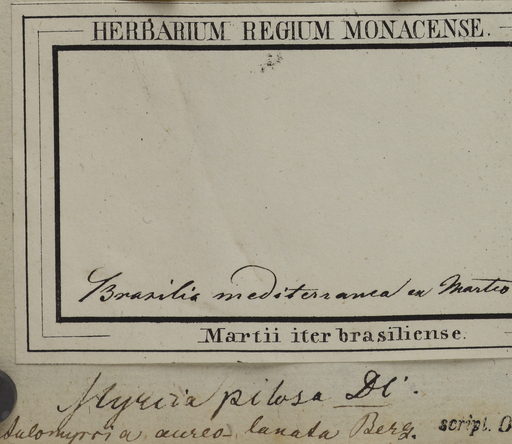 HERBARIUM REGIUM MONACENSE.
Brasilia mediterranea ex Martio
Martii iter brasiliense.
Myrcia pilosa DC.
Aulomyrcia aureo lanata Berg. script. O